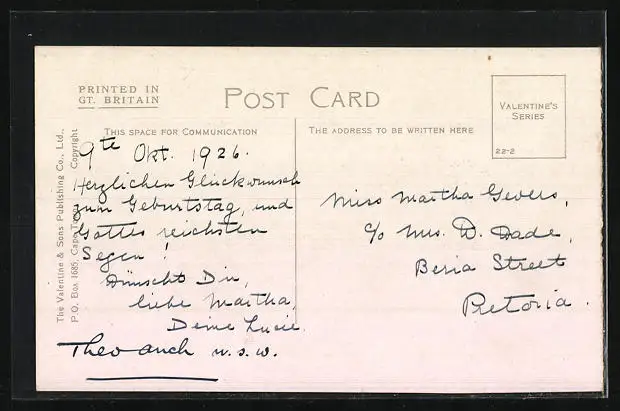 PRINTED IN
GT. BRITAIN
POST CARD
VALENTINE'S
SERIES
22-2
THIS SPACE FOR COMMUNICATION
THE ADDRESS TO BE WRITTEN HERE
The Valentine & Sons Publishing Co., Ltd.,
P.O. Box 1685, Cape Town. Copyright
9te Okt. 1926.
Herzlichen Glückwunsch
zum Geburtstag, und
Gottes reichsten
Segen!
Wünscht Dir,
liebe Martha,
Deine Lucie.
Theo auch u.s.w.
Miss Martha Gevers,
c/o Mrs. D. Dade,
Beria Street
Pretoria.